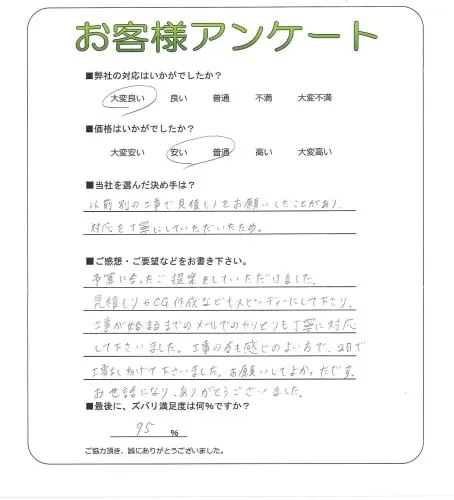 お客様アンケート
■弊社の対応はいかがでしたか？
大変良い 良い 普通 不満 大変不満
■価格はいかがでしたか？
大変安い 安い 普通 高い 大変高い
■当社を選んだ決め手は？
以前別の工事で見積もりをお願いしたことがあり
対応を丁寧にしていただいたため。
■ご感想・ご要望などをお書き下さい。
予算に合ったご提案をしていただけました。
見積もりやCG作成などもスピーディーにして下さり、
工事が始まるまでのメールでのやりとりも丁寧に対応
して下さいました。工事の方も感じのよい方で、2日で
工事をして下さいました。お願いしてよかったです。
お世話になり、ありがとうございました。
■最後に、ズバリ満足度は何%ですか？
95 %
ご協力頂き、誠にありがとうございました。